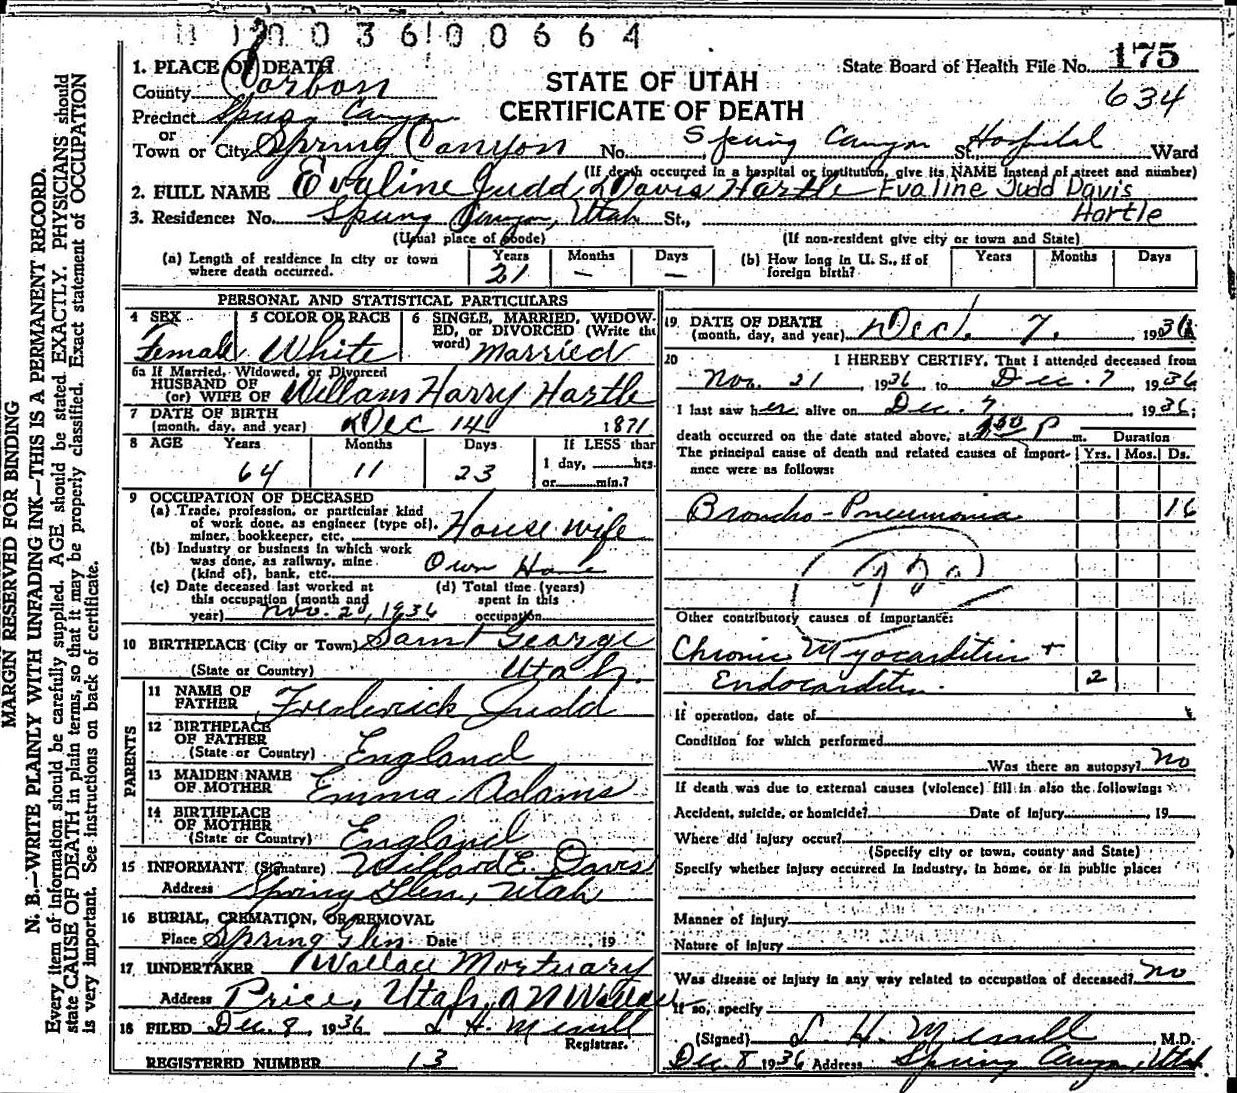 0 3 6 0 0 6 6 4
1. PLACE OF DEATH
County Carbon
Precinct Spring Canyon
or
Town or City Spring Canyon No. Spring Canyon St. Hospital Ward
STATE OF UTAH
CERTIFICATE OF DEATH
State Board of Health File No. 175
634
(If death occurred in a hospital or institution, give its NAME instead of street and number)
2. FULL NAME Evaline Judd Davis Hartle Evaline Judd Davis
Hartle
3. Residence: No. Spring Canyon, Utah St.,
(Usual place of abode) (If non-resident give city or town and State)
(a) Length of residence in city or town where death occurred. Years 21 Months — Days —
(b) How long in U. S., if of foreign birth? Years Months Days
PERSONAL AND STATISTICAL PARTICULARS
4 SEX Female
5 COLOR OR RACE White
6 SINGLE, MARRIED, WIDOWED, or DIVORCED (Write the word) Married
6a If Married, Widowed, or Divorced
HUSBAND OF
(or) WIFE OF Willam Harry Hartle
7 DATE OF BIRTH
(month, day, and year) Dec 14 1871
8 AGE Years 64 Months 11 Days 23 If LESS than 1 day, hrs. or min.?
9 OCCUPATION OF DECEASED
(a) Trade, profession, or particular kind
of work done, as engineer (type of).
miner, bookkeeper, etc. House wife
(b) Industry or business in which work
was done, as railway, mine
(kind of), bank, etc. Own Home
(c) Date deceased last worked at
this occupation (month and
year) Nov. 20, 1936
(d) Total time (years)
spent in this
occupation
10 BIRTHPLACE (City or Town) Saint George
(State or Country) Utah.
PARENTS
11 NAME OF
FATHER Frederick Judd
12 BIRTHPLACE
OF FATHER
(State or Country) England
13 MAIDEN NAME
OF MOTHER Emma Adams
14 BIRTHPLACE
OF MOTHER
(State or Country) England
15 INFORMANT (Signature) Willard E. Davis
Address Spring Glen, Utah
16 BURIAL, CREMATION, OR REMOVAL
Place Spring Glen Date , 19
17 UNDERTAKER Wallace Mortuary
Address Price, Utah, A N Wallace
18 FILED Dec. 8, 1936 L H. Merrill
Registrar.
REGISTERED NUMBER 13
19 DATE OF DEATH
(month, day, and year) Dec. 7. 1936
20 I HEREBY CERTIFY, That I attended deceased from
Nov. 21, 1936 to Dec. 7, 1936
I last saw her alive on Dec. 7 1936;
death occurred on the date stated above, at P m.
Duration
The principal cause of death and related causes of importance were as follows: Yrs. Mos. Ds.
Broncho-Pneumonia 16
Other contributory causes of importance:
Chronic Myocarditis +
Endocarditis. 2
If operation, date of
Condition for which performed
Was there an autopsy? No
If death was due to external causes (violence) fill in also the following:
Accident, suicide, or homicide? Date of injury , 19
Where did injury occur?
(Specify city or town, county and State)
Specify whether injury occurred in industry, in home, or in public place:
Manner of Injury
Nature of Injury
Was disease or injury in any way related to occupation of deceased? No
If so, specify
(Signed) L. H. Merrill, M.D.
Dec. 8 1936 Address Spring Canyon, Utah
MARGIN RESERVED FOR BINDING
N. B.—WRITE PLAINLY WITH UNFADING INK—THIS IS A PERMANENT RECORD.
Every item of information should be carefully supplied. AGE should be stated EXACTLY. PHYSICIANS should
state CAUSE OF DEATH in plain terms, so that it may be properly classified. Exact statement of OCCUPATION
is very important. See instructions on back of certificate.